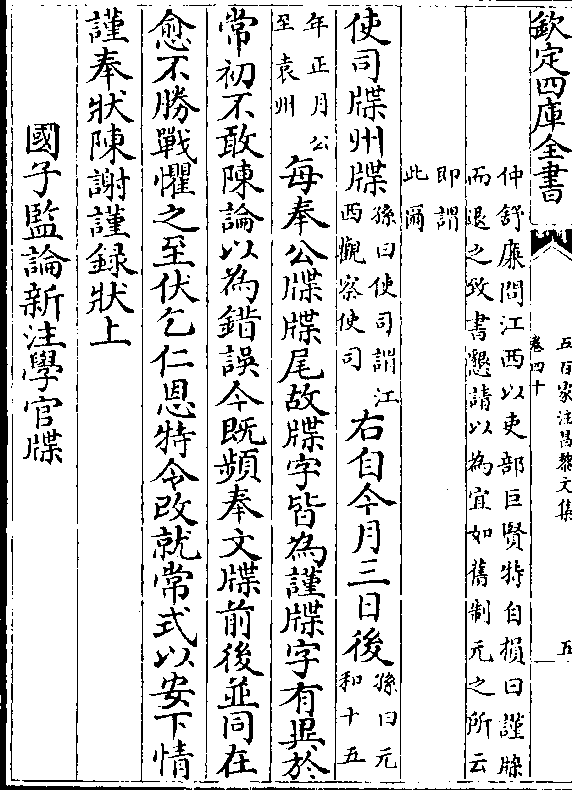 欽定四庫全書
五百家注昌黎文集
卷四十
五
仲舒廉問江西以吏部巨賢特自損曰謹牒
而退之致書懇請以為宜如舊制元之所云
即謂
此爾
使司牒州牒
孫曰使司謂江
西觀察使司
右自今月三日後
孫曰元
和十五
年正月公
至袁州
每奉公牒牒尾故牒字皆為謹牒字有異於
常初不敢陳論以為錯誤今既頻奉文牒前後並同在
愈不勝戰懼之至伏乞仁恩特令改就常式以安下情
謹奉狀陳謝謹録狀上
國子監論新注學官牒